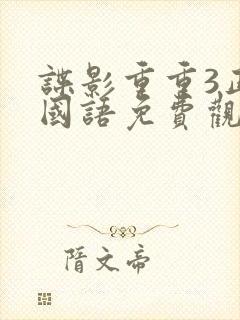 諜影重重3正
國語免費觀
隋文帝